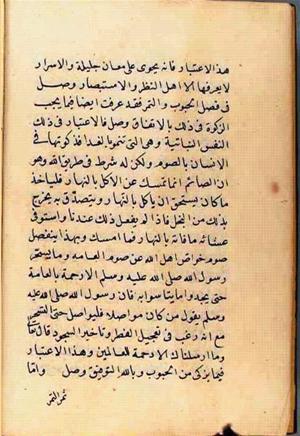 هذا الاعتبار فانه يحوى على معان جليلة والاسرار
لا يعرفها الا اهل النظر والاستبصار وصل
فى فصل الحبوب والتمر فقد عرفت ايضا فيما يجب
الزكوة فى ذلك بالاتفاق وصل فالاعتبار فى ذلك
النفس النباتية وهى التى تنمو بالغذا فزكوتها فى
الانسان بالصوم ولكن له شرط فى طريق الله وهو
ان الصائم انما تمسك عن الاكل بالنهار فلياخذ
ما كان يستحق ان ياكل بالنهار ويتصدق به ليخرج
بذلك من البخل فاذا لم يفعل ذلك عندنا واستوفى
عشائه ما فاته بالنهار فما امسك وبهذا ينفصل
صوم خواص اهل الله عن صوم العامه وما يستحر
رسول الله صلى الله عليه وسلم الا رحمة بالعامة
حتى يجدوا ما يتأسوا به فان رسول الله صلى الله عليه
وسلم يقول من كان مواصلا فليواصل حتى السحر
مع انه رغب فى تعجيل الفطر وتاخير السحور قال تعالى
وما ارسلناك الا رحمة للعالمين وهذا الاعتبار
فيما يزكى من الحبوب وبالله التوفيق وصل واما
ثمر التمر